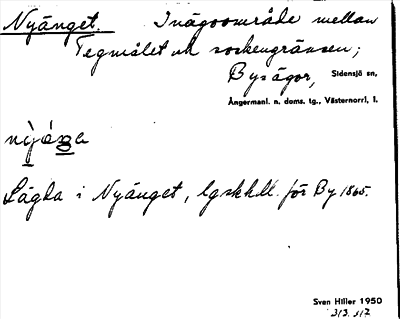 Nyänget. Inägoområde mellan
Tegmålet och sockengränsen;
By:s ägor, Sidensjö sn,
Ångermanl. n. doms. tg., Västernorrl. l.
Lägda i Nyänget, lgskhdl. för By 1865.
Sven Hiller 1950
313. 117